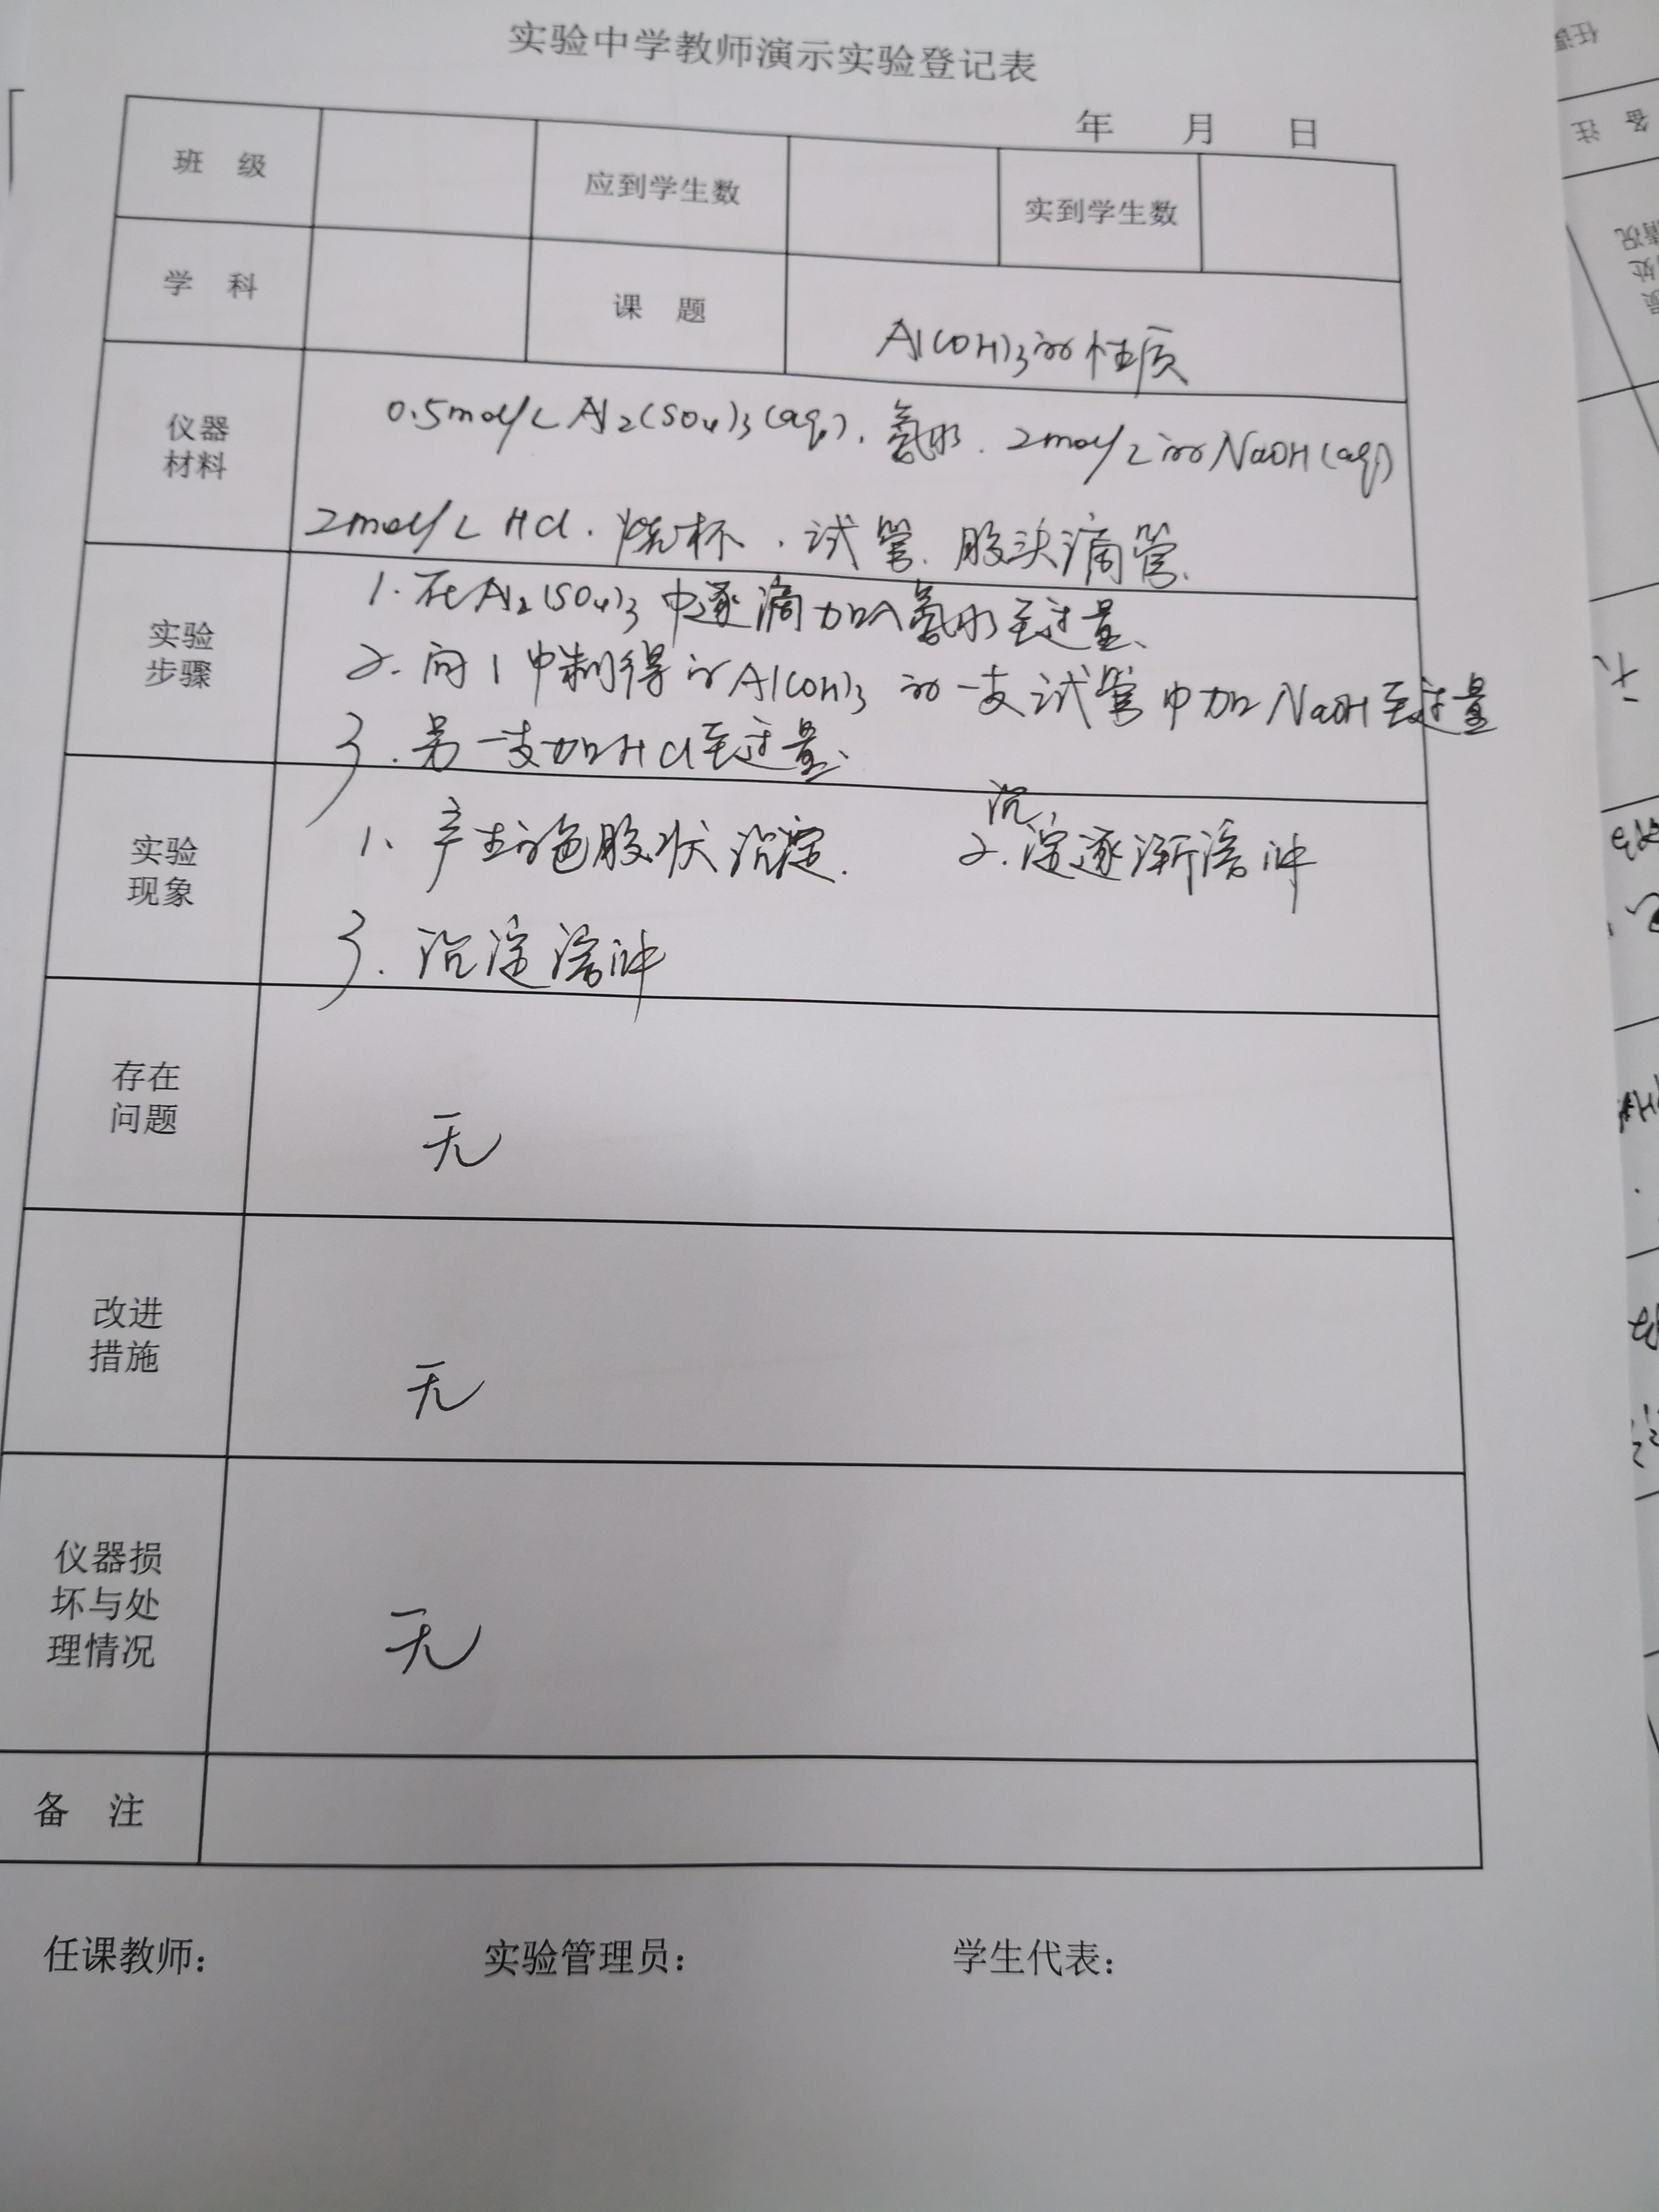 实验中学教师演示实验登记表
年 月 日
班 级 应到学生数 实到学生数
学 科 课 题 Al(OH)3的性质
仪器材料
0.5mol/L Al2(SO4)3(aq)、氨水、2mol/L的NaOH(aq)
2mol/L HCl、烧杯、试管、胶头滴管
实验步骤
1.在Al2(SO4)3中逐滴加入氨水至过量、
2.向1中制得的Al(OH)3的一支试管中加NaOH至过量
3.另一支加HCl至过量、
实验现象
1、产生白色胶状沉淀. 2.沉淀逐渐溶
3.沉淀溶
存在问题
无
改进措施
无
仪器损坏与处理情况
无
备 注
任课教师： 实验管理员： 学生代表：